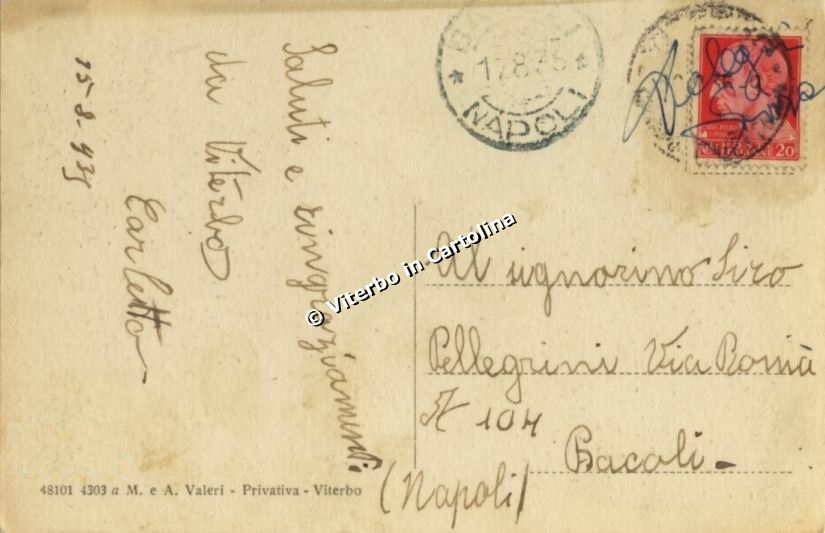 15-8-935
Saluti e ringraziamenti
da Viterbo
Carletto
BACOLI
17.8.35
NAPOLI
20
Al signorino Siro
Pellegrini Via Roma
N 104
Bacoli
(Napoli)
© Viterbo in Cartolina
48101 4303 a M. e A. Valeri - Privativa - Viterbo